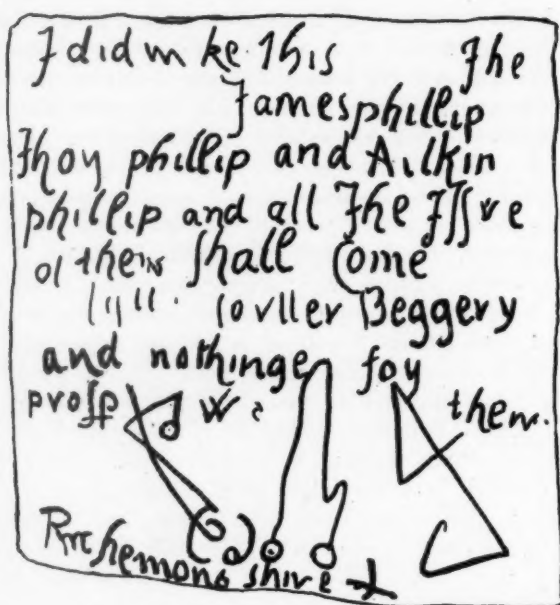 I did m ke This The
James phillip
Jhon phillip and Ailkin
phillip and all The Issve
of them shall Come
Beggery
and nothinge foy
prosp w them.
Richemondshire